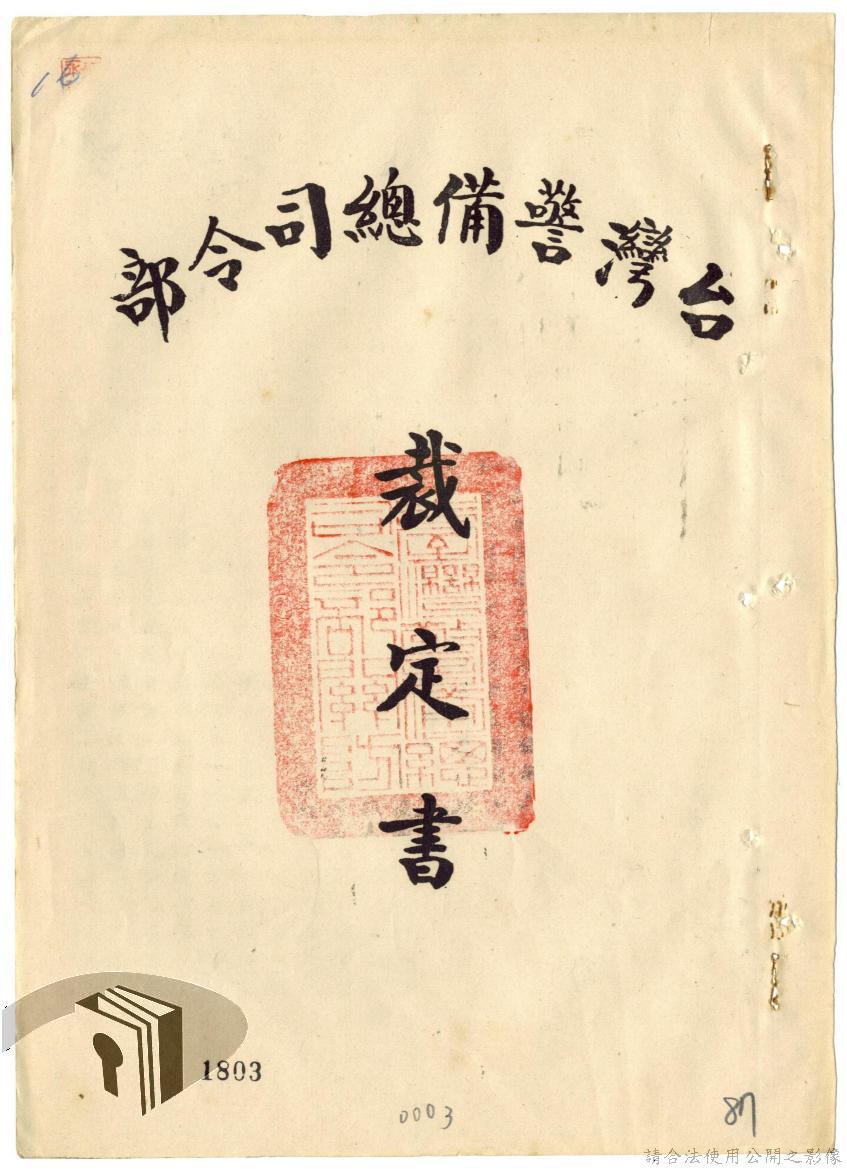 台灣警備總司令部
裁定書
1803
0003
87
請合法使用公開之影像